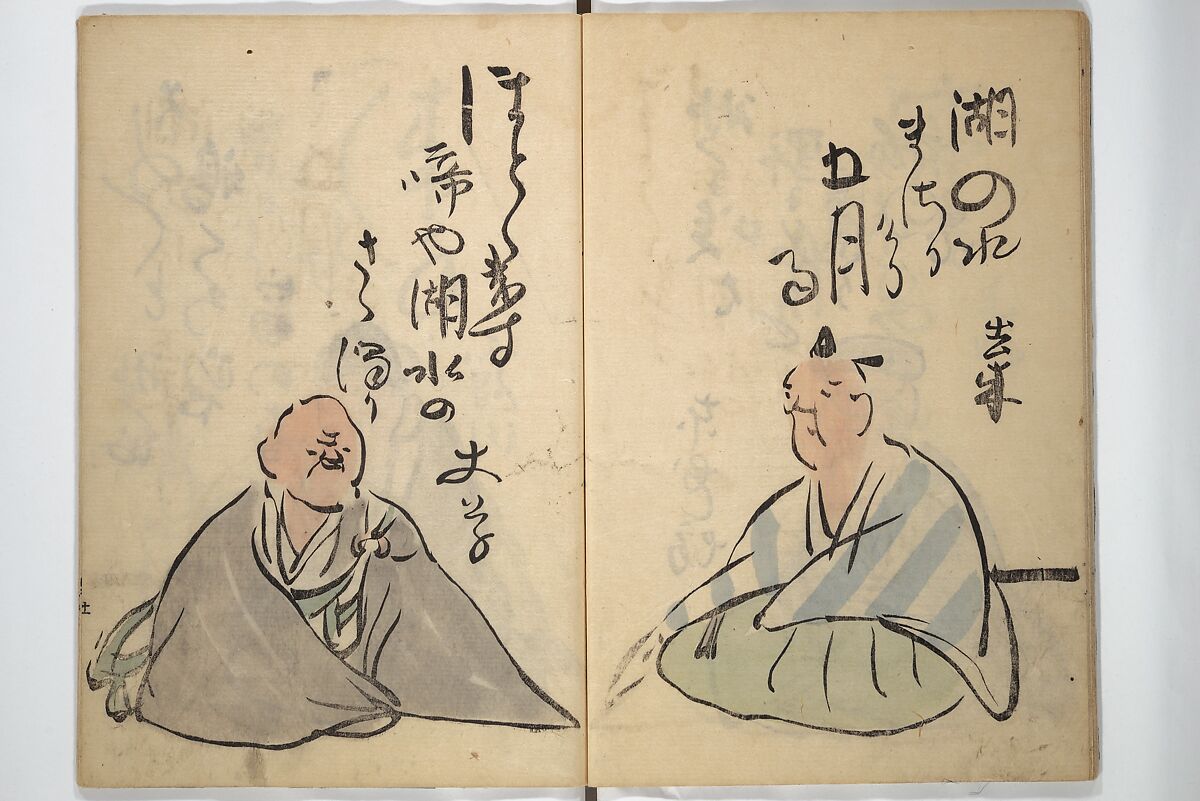 湖の水
まさりけり
五月
雨
去来
ほとゝきす
啼や湖水の
さゝ濁り
丈草